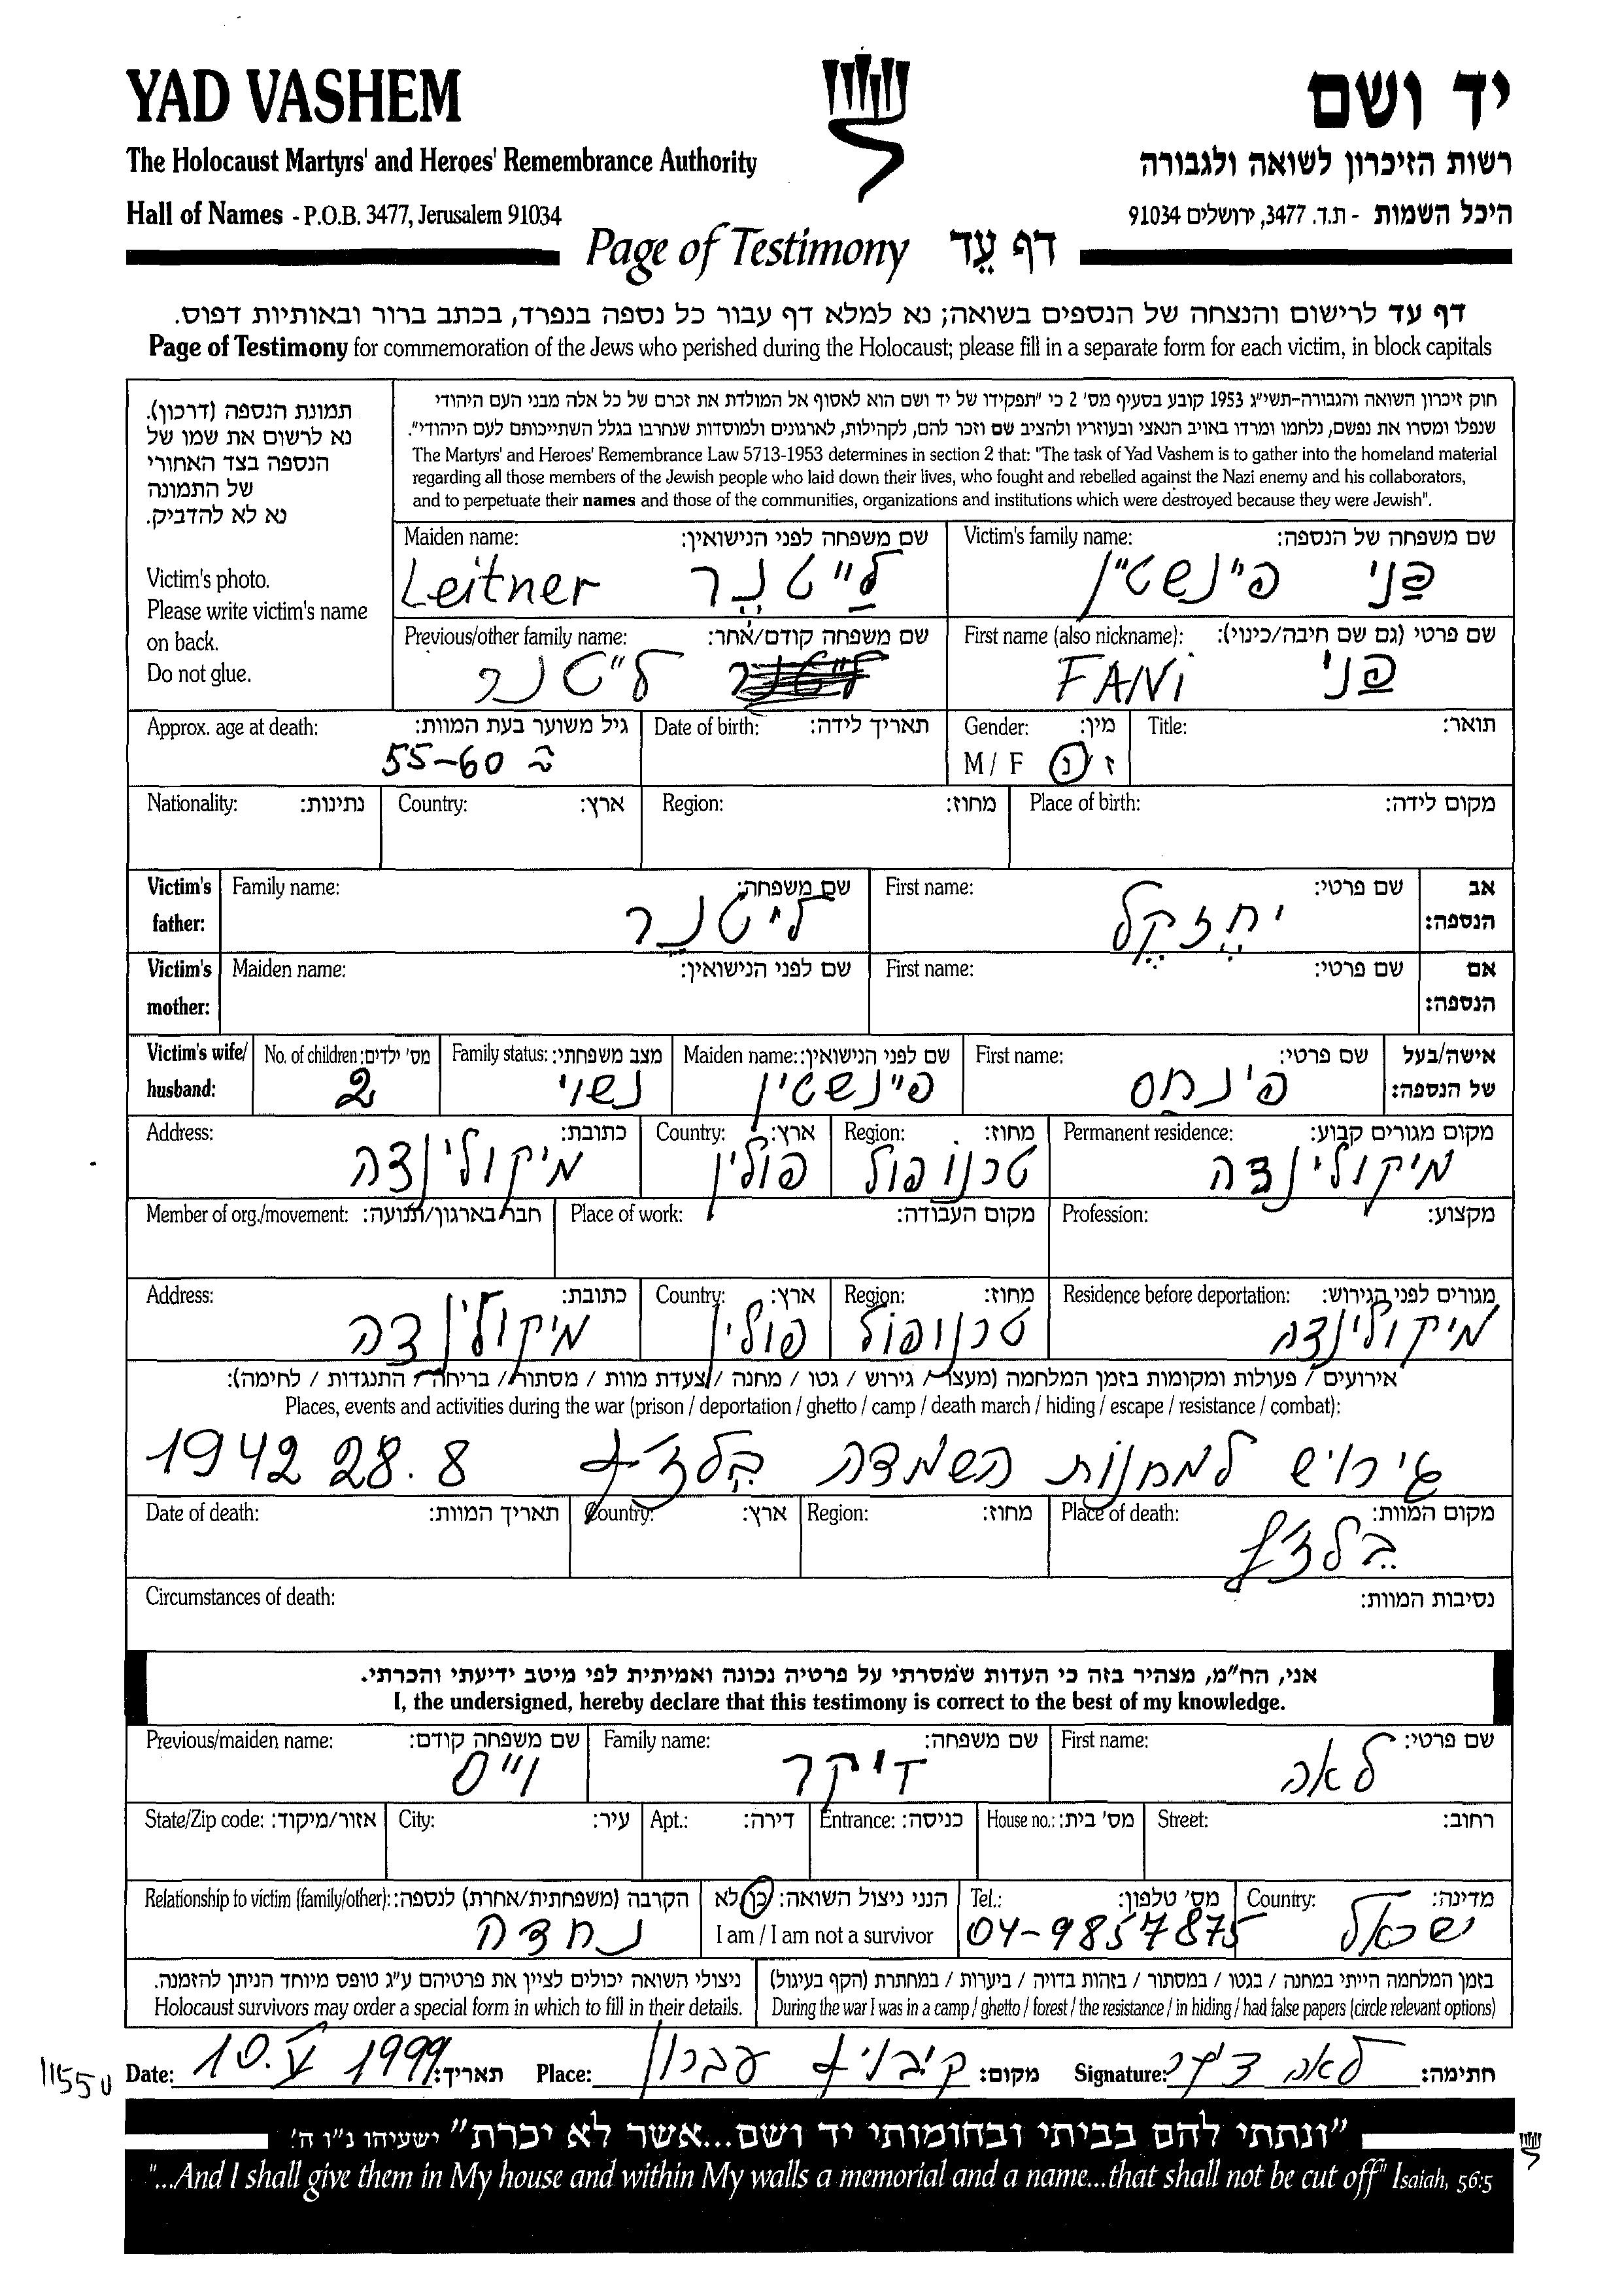 YAD VASHEM
יד ושם
The Holocaust Martyrs' and Heroes' Remembrance Authority
רשות הזיכרון לשואה ולגבורה
Hall of Names - P.O.B. 3477, Jerusalem 91034
היכל השמות - ת.ד. 3477, ירושלים 91034
Page of Testimony דף עֵד
דף עד לרישום והנצחה של הנספים בשואה; נא למלא דף עבור כל נספה בנפרד, בכתב ברור ובאותיות דפוס.
Page of Testimony for commemoration of the Jews who perished during the Holocaust; please fill in a separate form for each victim, in block capitals
תמונת הנספה (דרכון).
נא לרשום את שמו של
הנספה בצד האחורי
של התמונה
נא לא להדביק.
Victim's photo.
Please write victim's name
on back.
Do not glue.
חוק זיכרון השואה והגבורה-תשי"ג 1953 קובע בסעיף מס' 2 כי "תפקידו של יד ושם הוא לאסוף אל המולדת את זכרם של כל אלה מבני העם היהודי
שנפלו ומסרו את נפשם, נלחמו ומרדו באויב הנאצי ובעוזריו ולהציב שם וזכר להם, לקהילות, לארגונים ולמוסדות שנחרבו בגלל השתייכותם לעם היהודי".
The Martyrs' and Heroes' Remembrance Law 5713-1953 determines in section 2 that: "The task of Yad Vashem is to gather into the homeland material
regarding all those members of the Jewish people who laid down their lives, who fought and rebelled against the Nazi enemy and his collaborators,
and to perpetuate their names and those of the communities, organizations and institutions which were destroyed because they were Jewish".
Victim's family name: שם משפחה של הנספה:
פַני פיינשטיין
Maiden name: שם משפחה לפני הנישואין:
Leitner לַייטנֶר
First name (also nickname): שם פרטי (גם שם חיבה/כינוי):
FANi פַני
Previous/other family name: שם משפחה קודם/אחר:
לייטנר
Title: תואר:
Gender: מין:
M / F ז / נ
Date of birth: תאריך לידה:
Approx. age at death: גיל משוער בעת המוות:
55-60 כ
Place of birth: מקום לידה:
Region: מחוז:
Country: ארץ:
Nationality: נתינות:
Victim's father: אב הנספה:
First name: שם פרטי:
יחֶזקֵל
Family name: שם משפחה:
לייטנֶר
Victim's mother: אם הנספה:
First name: שם פרטי:
Maiden name: שם לפני הנישואין:
Victim's wife/husband: אישה/בעל של הנספה:
First name: שם פרטי:
פינחַס
Maiden name: שם לפני הנישואין:
פיינשטיין
Family status: מצב משפחתי:
נשוי
No. of children: מס' ילדים:
2
Permanent residence: מקום מגורים קבוע:
מיקולינצה
Region: מחוז:
טרנופול
Country: ארץ:
פולין
Address: כתובת:
מיקולינצה
Profession: מקצוע:
Place of work: מקום העבודה:
Member of org./movement: חבר בארגון/תנועה:
Residence before deportation: מגורים לפני הגירוש:
מיקולינצה
Region: מחוז:
טרנופול
Country: ארץ:
פולין
Address: כתובת:
מיקולינצה
אירועים / פעולות ומקומות בזמן המלחמה (מעצר / גירוש / גטו / מחנה / צעדת מוות / מסתור / בריחה / התנגדות / לחימה):
Places, events and activities during the war (prison / deportation / ghetto / camp / death march / hiding / escape / resistance / combat):
גירוש למחנות השמדה בֶלז'ץ 28.8 1942
Place of death: מקום המוות:
בֶלז'ץ
Region: מחוז:
Country: ארץ:
Date of death: תאריך המוות:
Circumstances of death: נסיבות המוות:
אני, הח"מ, מצהיר בזה כי העדות שמסרתי על פרטיה נכונה ואמיתית לפי מיטב ידיעתי והכרתי.
I, the undersigned, hereby declare that this testimony is correct to the best of my knowledge.
First name: שם פרטי:
לאה
Family name: שם משפחה:
דיקר
Previous/maiden name: שם משפחה קודם:
וייס
Street: רחוב:
House no.: מס' בית:
Entrance: כניסה:
Apt.: דירה:
City: עיר:
State/Zip code: אזור/מיקוד:
Country: מדינה:
ישראל
Tel.: מס' טלפון:
04-9857875
הנני ניצול השואה: כן לא
I am / I am not a survivor
Relationship to victim (family/other): הקרבה (משפחתית/אחרת) לנספה:
נחדה
בזמן המלחמה הייתי במחנה / בגטו / במסתור / בזהות בדויה / ביערות / במחתרת (הקף בעיגול)
During the war I was in a camp / ghetto / forest / the resistance / in hiding / had false papers (circle relevant options)
ניצולי השואה יכולים לציין את פרטיהם ע"ג טופס מיוחד הניתן להזמנה.
Holocaust survivors may order a special form in which to fill in their details.
Date: 10.V 1999 תאריך: Place: קיבוץ עברון מקום: Signature: לאה דיקר חתימה:
"ונתתי להם בביתי ובחומותי יד ושם...אשר לא יכרת" ישעיהו נ"ו ה'
"...And I shall give them in My house and within My walls a memorial and a name...that shall not be cut off" Isaiah, 56:5